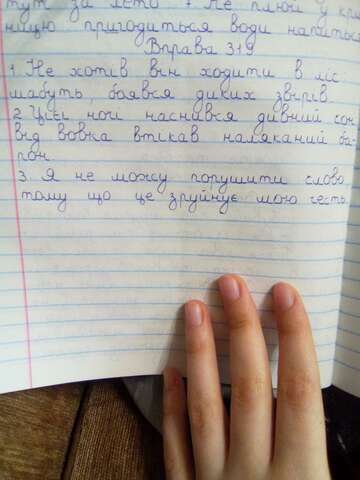 тут за літо 7 Не плюй у кри
ницю пригодиться води напитись
Вправа 319
1. Не хотів він ходити в ліс
мабуть, боявся диких звірів.
2. Цієї ночі наснився дивний сон
від вовка втікав наляканий ба-
рон.
3. Я не можу порушити слово
тому що це зруйнує мою честь.